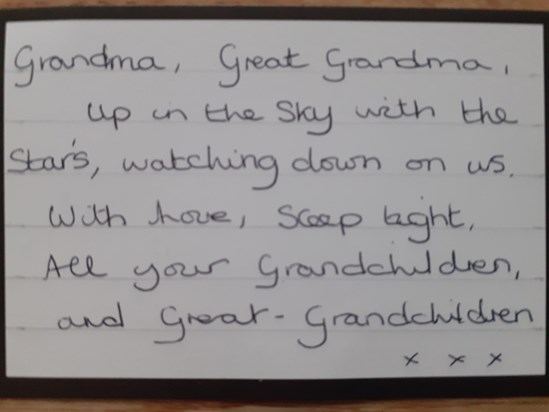 Grandma, Great Grandma,
up in the Sky with the
Star's, watching down on us.
With Love, Sleep tight,
All your Grandchildren,
and Great-Grandchildren
x x x